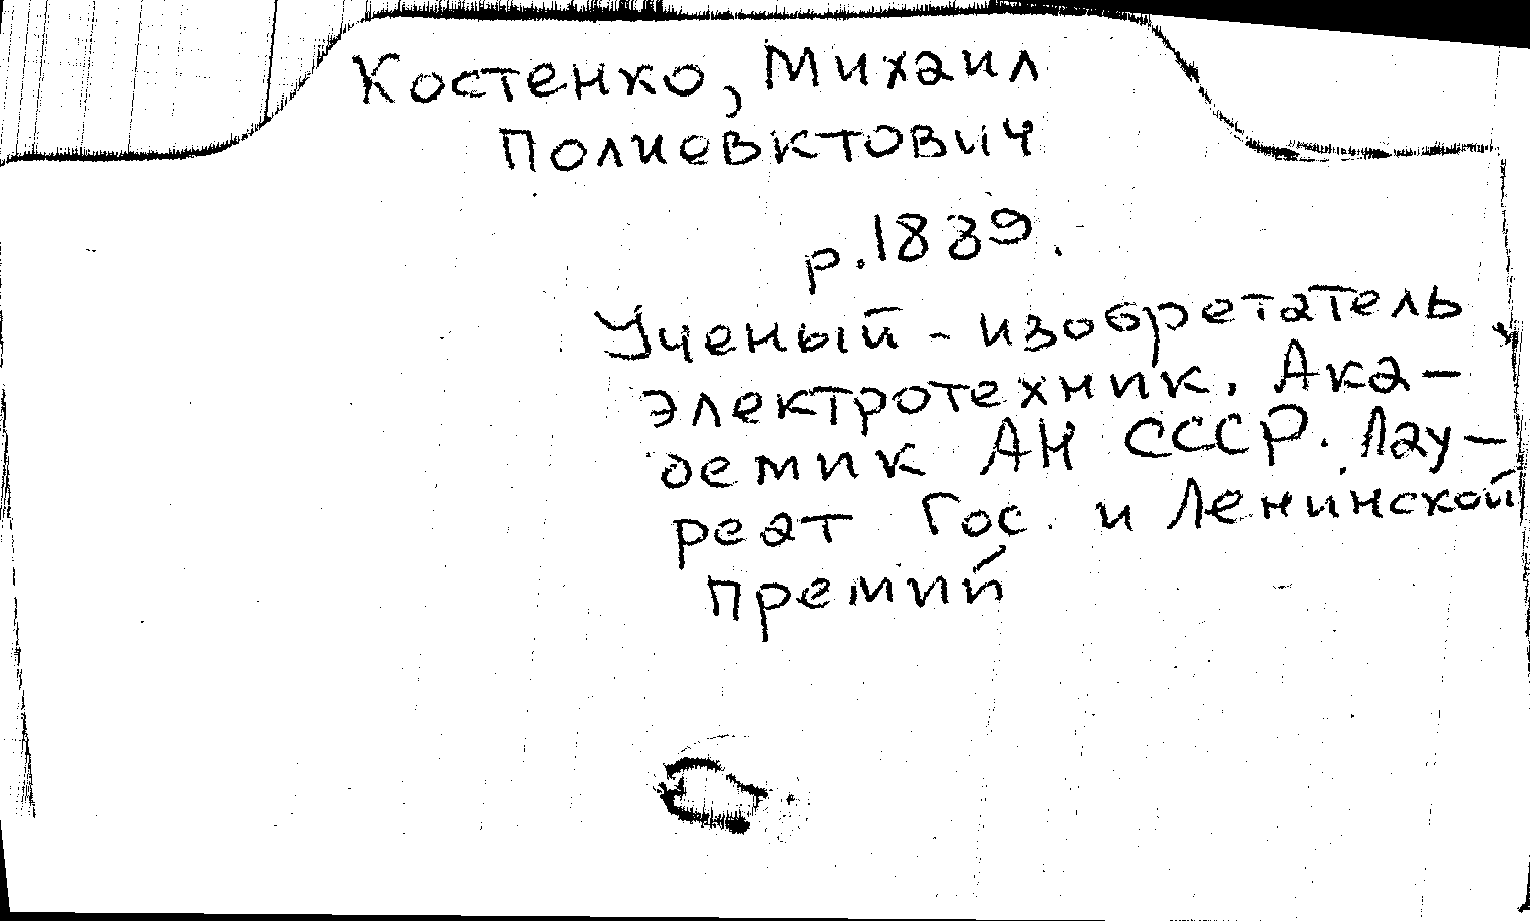 Костенко, Михаил
Полиевктович
р. 1889.
Ученый - изобретатель,
электротехник. Ака-
демик АН СССР. Лау-
реат Гос. и Ленинской
премий